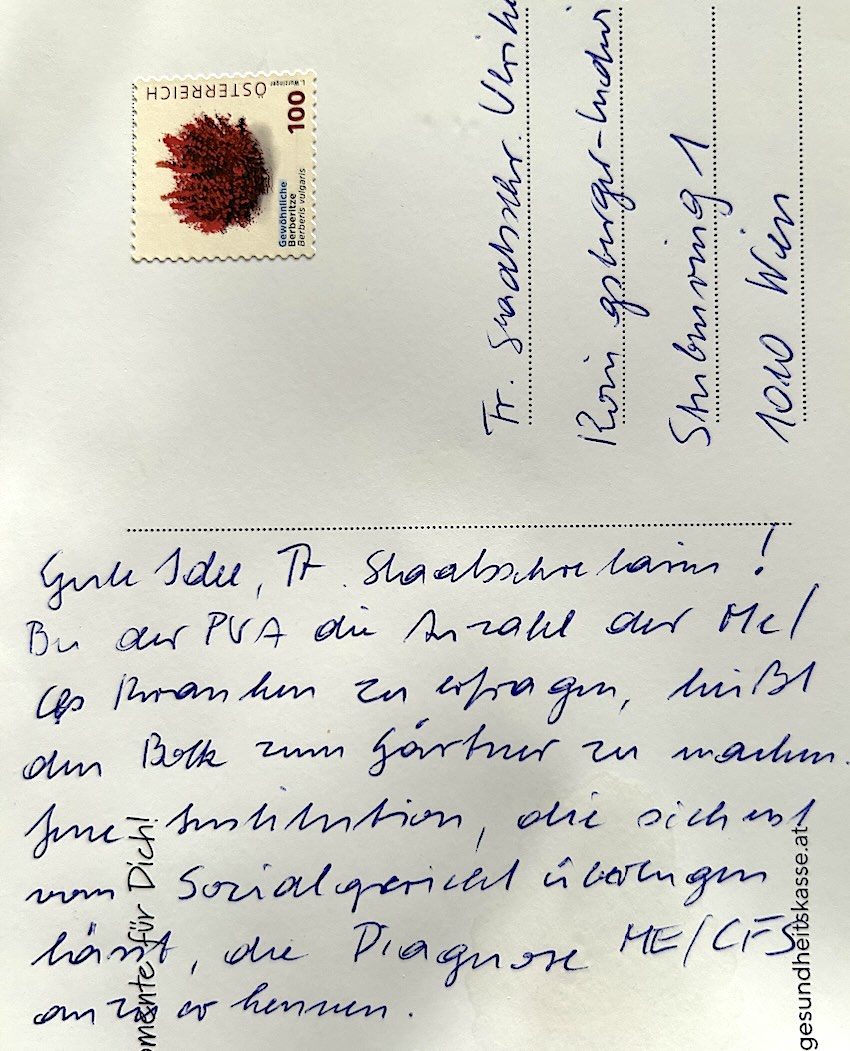 ÖSTERREICH
I. Wurzinger
100
Gewöhnliche
Berberitze
Berberis vulgaris
Fr. Staatssekr. Ulrike
Königsberger-Ludwi
Stubenring 1
1010 Wien
Gute Idee, Fr. Staatssekretärin!
Bei der PVA die Anzahl der Me/
Cfs Kranken zu erfragen, heißt
den Bock zum Gärtner zu machen.
Jene Institution, die sich erst
vom Sozialgericht überzeugen
lässt, die Diagnose ME/CFS
anzuerkennen.
omente für Dich!
gesundheitskasse.at